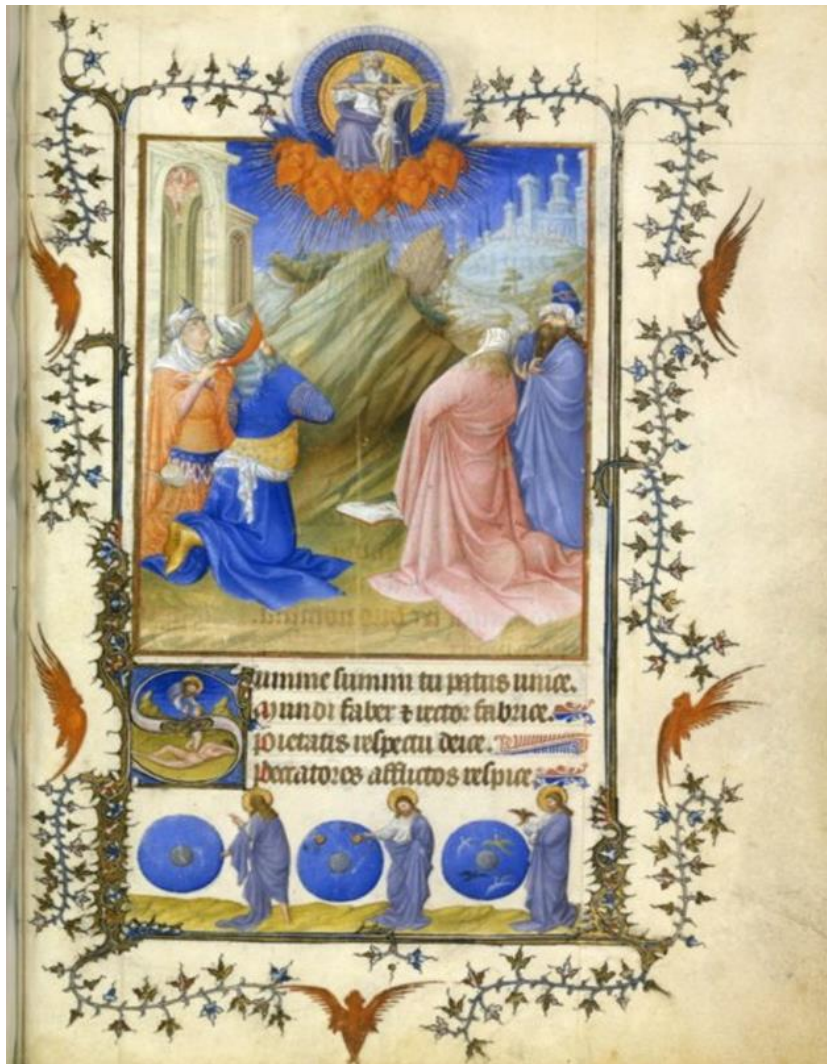 Summe summi tu patris unice.
Mundi faber et rector fabrice.
Pietatis respectu deice.
Peccatores afflictos respice.